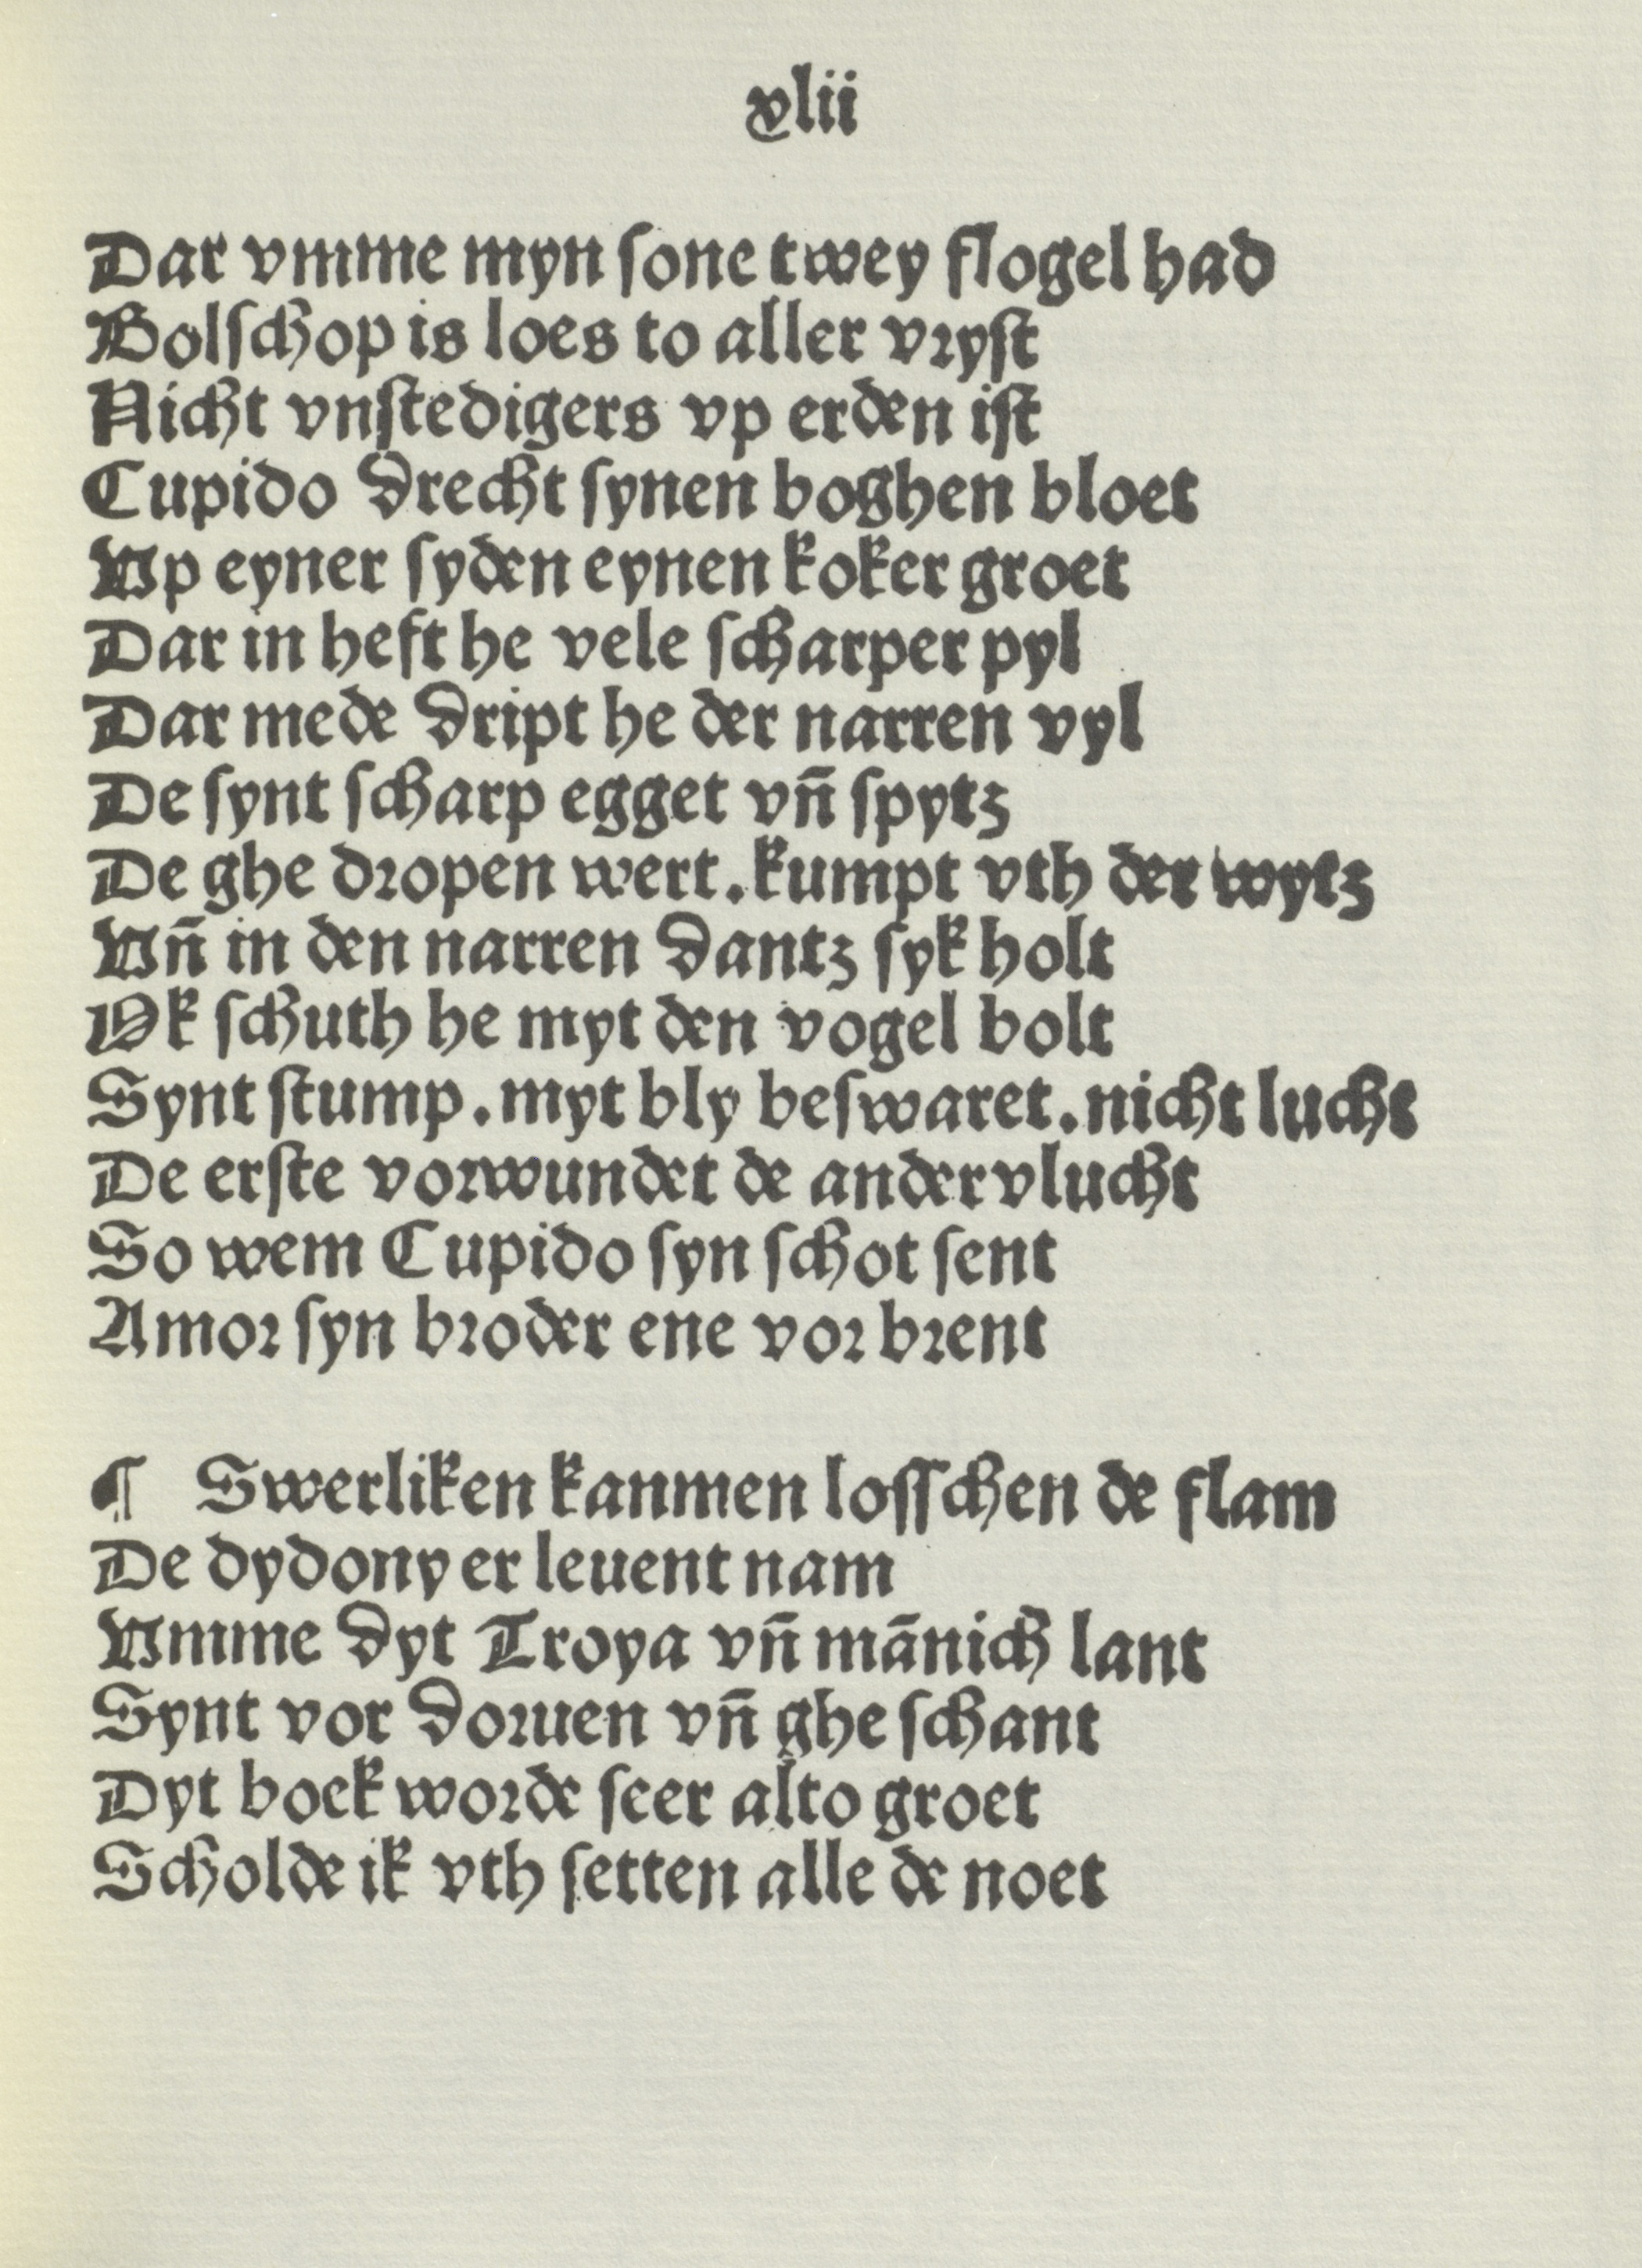 xlii
Dar vmme myn ſone twey flogel had
Bolſchop is loes to aller vꝛyſt
Nicht vnſtedigers vp erden iſt
Cupido drecht ſynen boghen bloet
Vp eyner ſyden eynen koker groet
Dar in heft he vele ſcharper pyl
Dar mede dript he der narren vyl
De ſynt ſcharp egget vn̄ ſpytz
De ghe dꝛopen wert.kumpt vth der wytz
Vn̄ in den narren dantz ſyk holt
Ok ſchuth he myt den vogel bolt
Synt ſtump.myt bly beſwaret.nicht lucht
De erſte voꝛwundet de ander vlucht
So wem Cupido ſyn ſchot ſent
Amoꝛ ſyn bꝛoder ene voꝛ bꝛent
¶ Swerliken kanmen loſſchen de flam
De dydony er leuent nam
Vmme dyt Troya vn̄ mānich lant
Synt vor doꝛuen vn̄ ghe ſchant
Dyt boek woꝛde ſeer alto groet
Scholde ik vth ſetten alle de noet